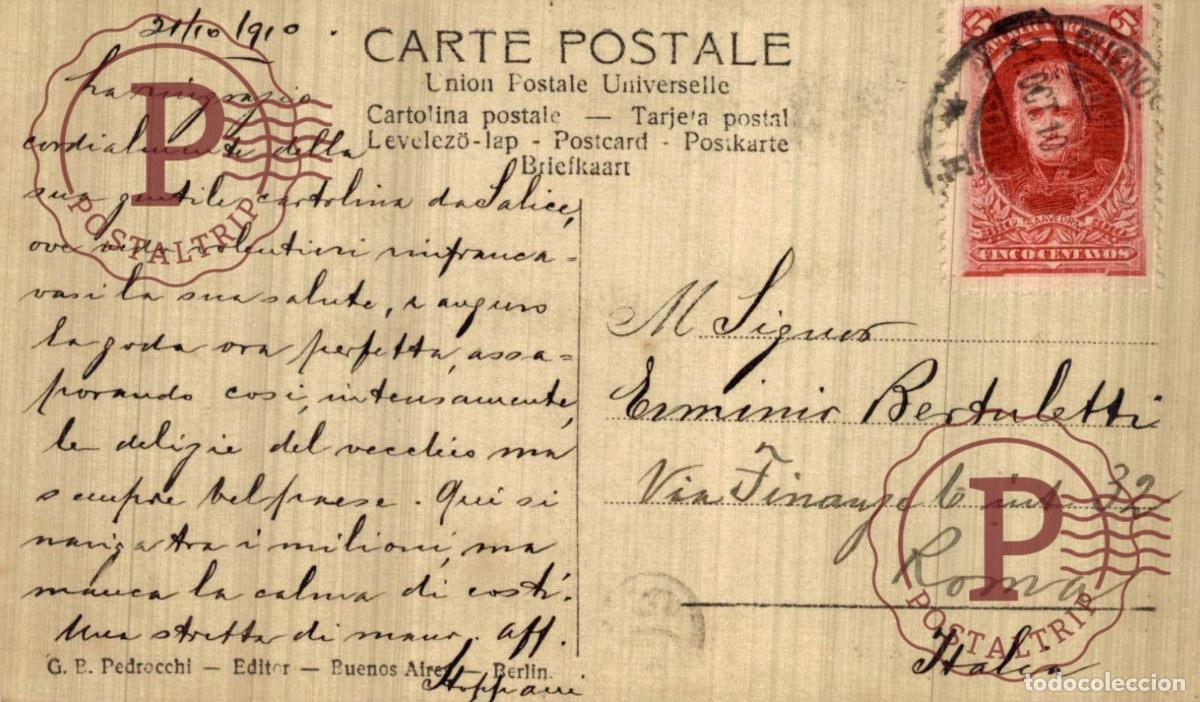 21/10/1910.
CARTE POSTALE
Union Postale Universelle
Cartolina postale — Tarjeta postal
Levelező-lap - Postcard - Postkarte
Briefkaart
La ringrazio
cordialmente della
sua gentile cartolina da Salice,
ove volentieri rinfranca-
vasi la sua salute, e auguro
la goda ora perfetta, assa=
porando così, intensamente,
le delizie del vecchio ma
sempre bel paese. Qui si
naviga tra i milioni, ma
manca la calma di costì.
Una stretta di mano. aff.
Stoppani
G. B. Pedrocchi — Editor — Buenos Aires — Berlin.
5 5
BUENOS
OCT 10
SAAVEDRA
CINCO CENTAVOS
Al Signor
Erminio Bertuletti
Via Finanze 6 int. 32
Roma
Italia
P
POSTALTRIP
P
POSTALTRIP
todocoleccion